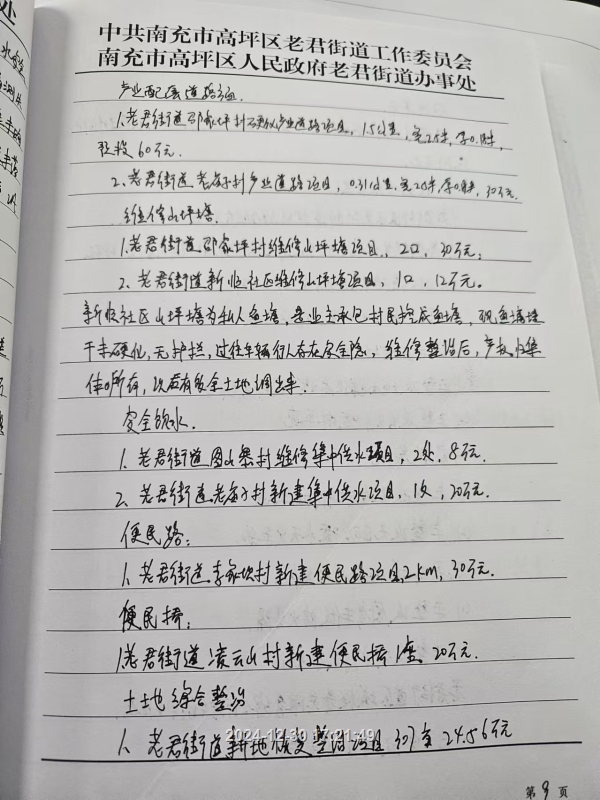 中共南充市高坪区老君街道工作委员会
南充市高坪区人民政府老君街道办事处
产业配套道路
1.老君街道邵家坪村硬化产业道路项目，1.5公里，宽2.5米，厚0.1米，
投 60万元.
2、老君街道老母子村产业道路项目，0.31公里，宽2.5米，厚0.1米，30万元.
维修山坪塘.
1.老君街道邵家坪村维修山坪塘项目，2口，30万元；
2.老君街道新临社区维修山坪塘项目，1口，12万元。
新临社区山坪塘为私人鱼塘，是业主承包村民挖成鱼塘，现鱼塘埂
于未硬化，无护拦，过往车辆行人存在安全隐，维修整治后，产权归集
体所有，没有安全土地调出来.
安全饮水.
1、老君街道图山寨村维修集中供水项目，2处，8万元.
2、老君街道老母子村新建集中供水项目，1处，20万元.
便民路：
1、老君街道李家坝村新建便民路项目，2km，30万元.
便民桥：
1.老君街道凌云山村新建便民桥1座 20万元.
土地综合整治
1、老君街道耕地恢复整治项目 307亩 24.56万元
2024-12-30 17:21:49
第9页